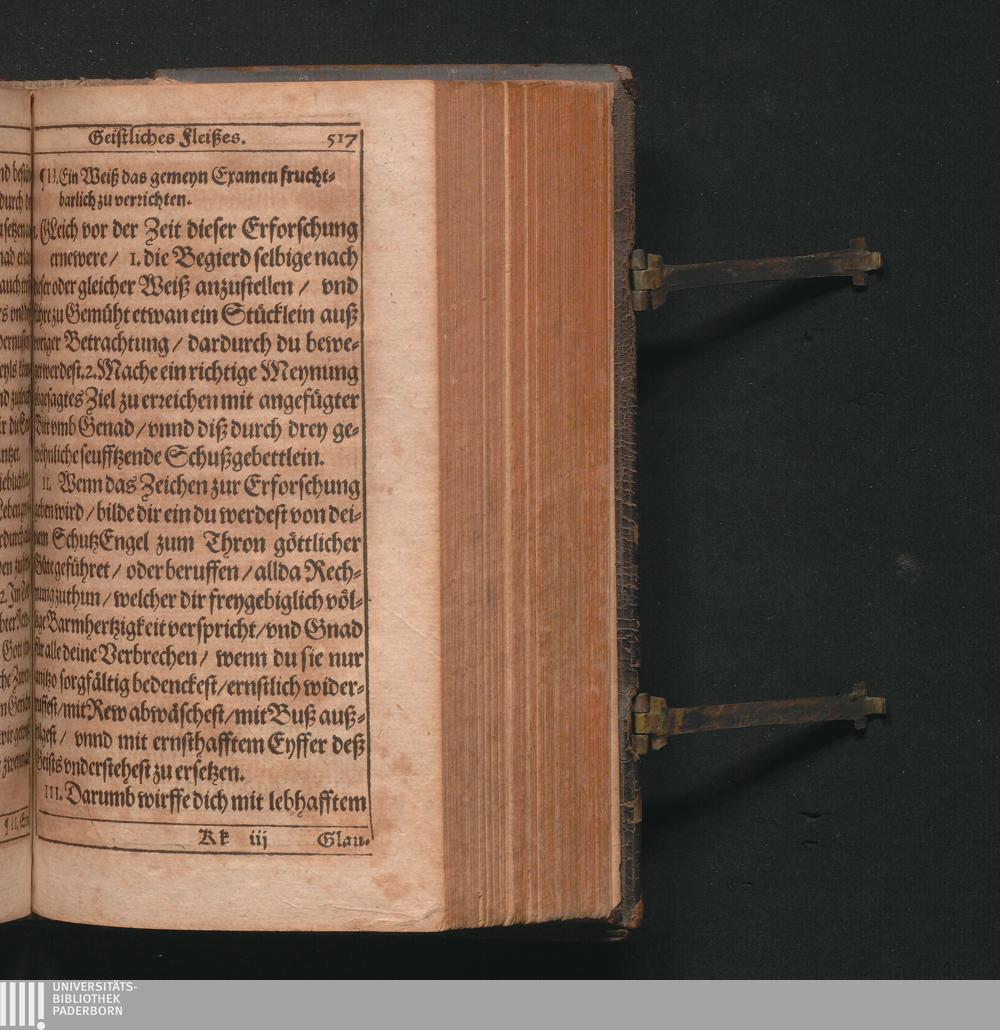 Geistliches Fleißes. 517
¶ II. Ein Weiß das gemeyn Examen frucht-
barlich zu verrichten.
GLeich vor der Zeit dieser Erforschung
ernewere / 1. die Begierd selbige nach
dieser oder gleicher Weiß anzustellen / vnd
führe zu Gemüht etwan ein Stücklein auß
voriger Betrachtung / dardurch du bewe-
werdest. 2. Mache ein richtige Meynung
Ziel zu erreichen mit angefügter
Bitt vmb Genad / vnnd diß durch drey ge-
wöhnliche seufftzende Schußgebettlein.
II. Wenn das Zeichen zur Erforschung
geben wird / bilde dir ein du werdest von dei-
nem SchutzEngel zum Thron göttlicher
Güte geführet / oder beruffen / allda Rech-
nung zuthun / welcher dir freygebiglich völ-
lige Barmhertzigkeit verspricht / vnd Gnad
für alle deine Verbrechen / wenn du sie nur
anjtzo sorgfältig bedenckest / ernstlich wider-
ruffest / mit Rew abwäschest / mit Buß auß-
tilgest / vnnd mit ernsthafftem Eyffer deß
Geists vnderstehest zu ersetzen.
III. Darumb wirffe dich mit lebhafftem
Kk iij Glau-
UNIVERSITÄTS-
BIBLIOTHEK
PADERBORN